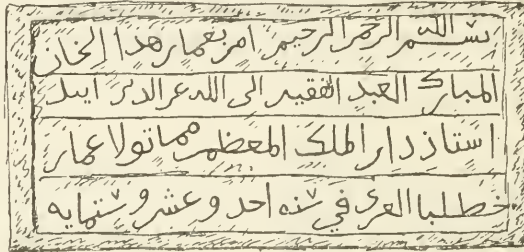 بسم الله الرحمن الرحيم امر بعمارة هذا الخان
المبارك العبد الفقير الى الله عز الدين ايبك
استاذ دار الملك المعظم مما تولا عمار
خطلبا العزى في سنة احد وعشر وستمايه